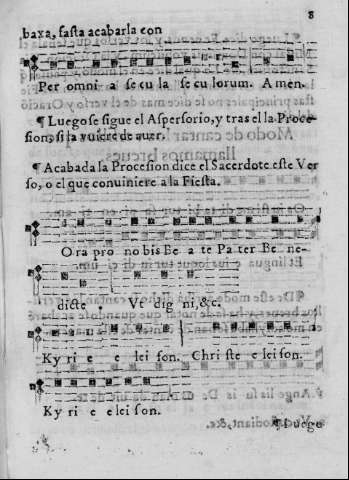 8
baxa, fasta acabarla con
Per omni a se cu la se cu lorum. Amen.
¶ Luego se sigue el Aspersorio, y tras el la Proce-
sion, si la vuiere de auer.
¶ Acabada la Procesion dice el Sacerdote este Ver
so, o el que conuiniere a la Fiesta.
Ora pro no bis Be a te Pa ter Be ne-
dicte Vt dig ni, &c.
Ky ri e e lei son. Chri ste e lei son.
Ky ri e e lei son.
¶ Luego